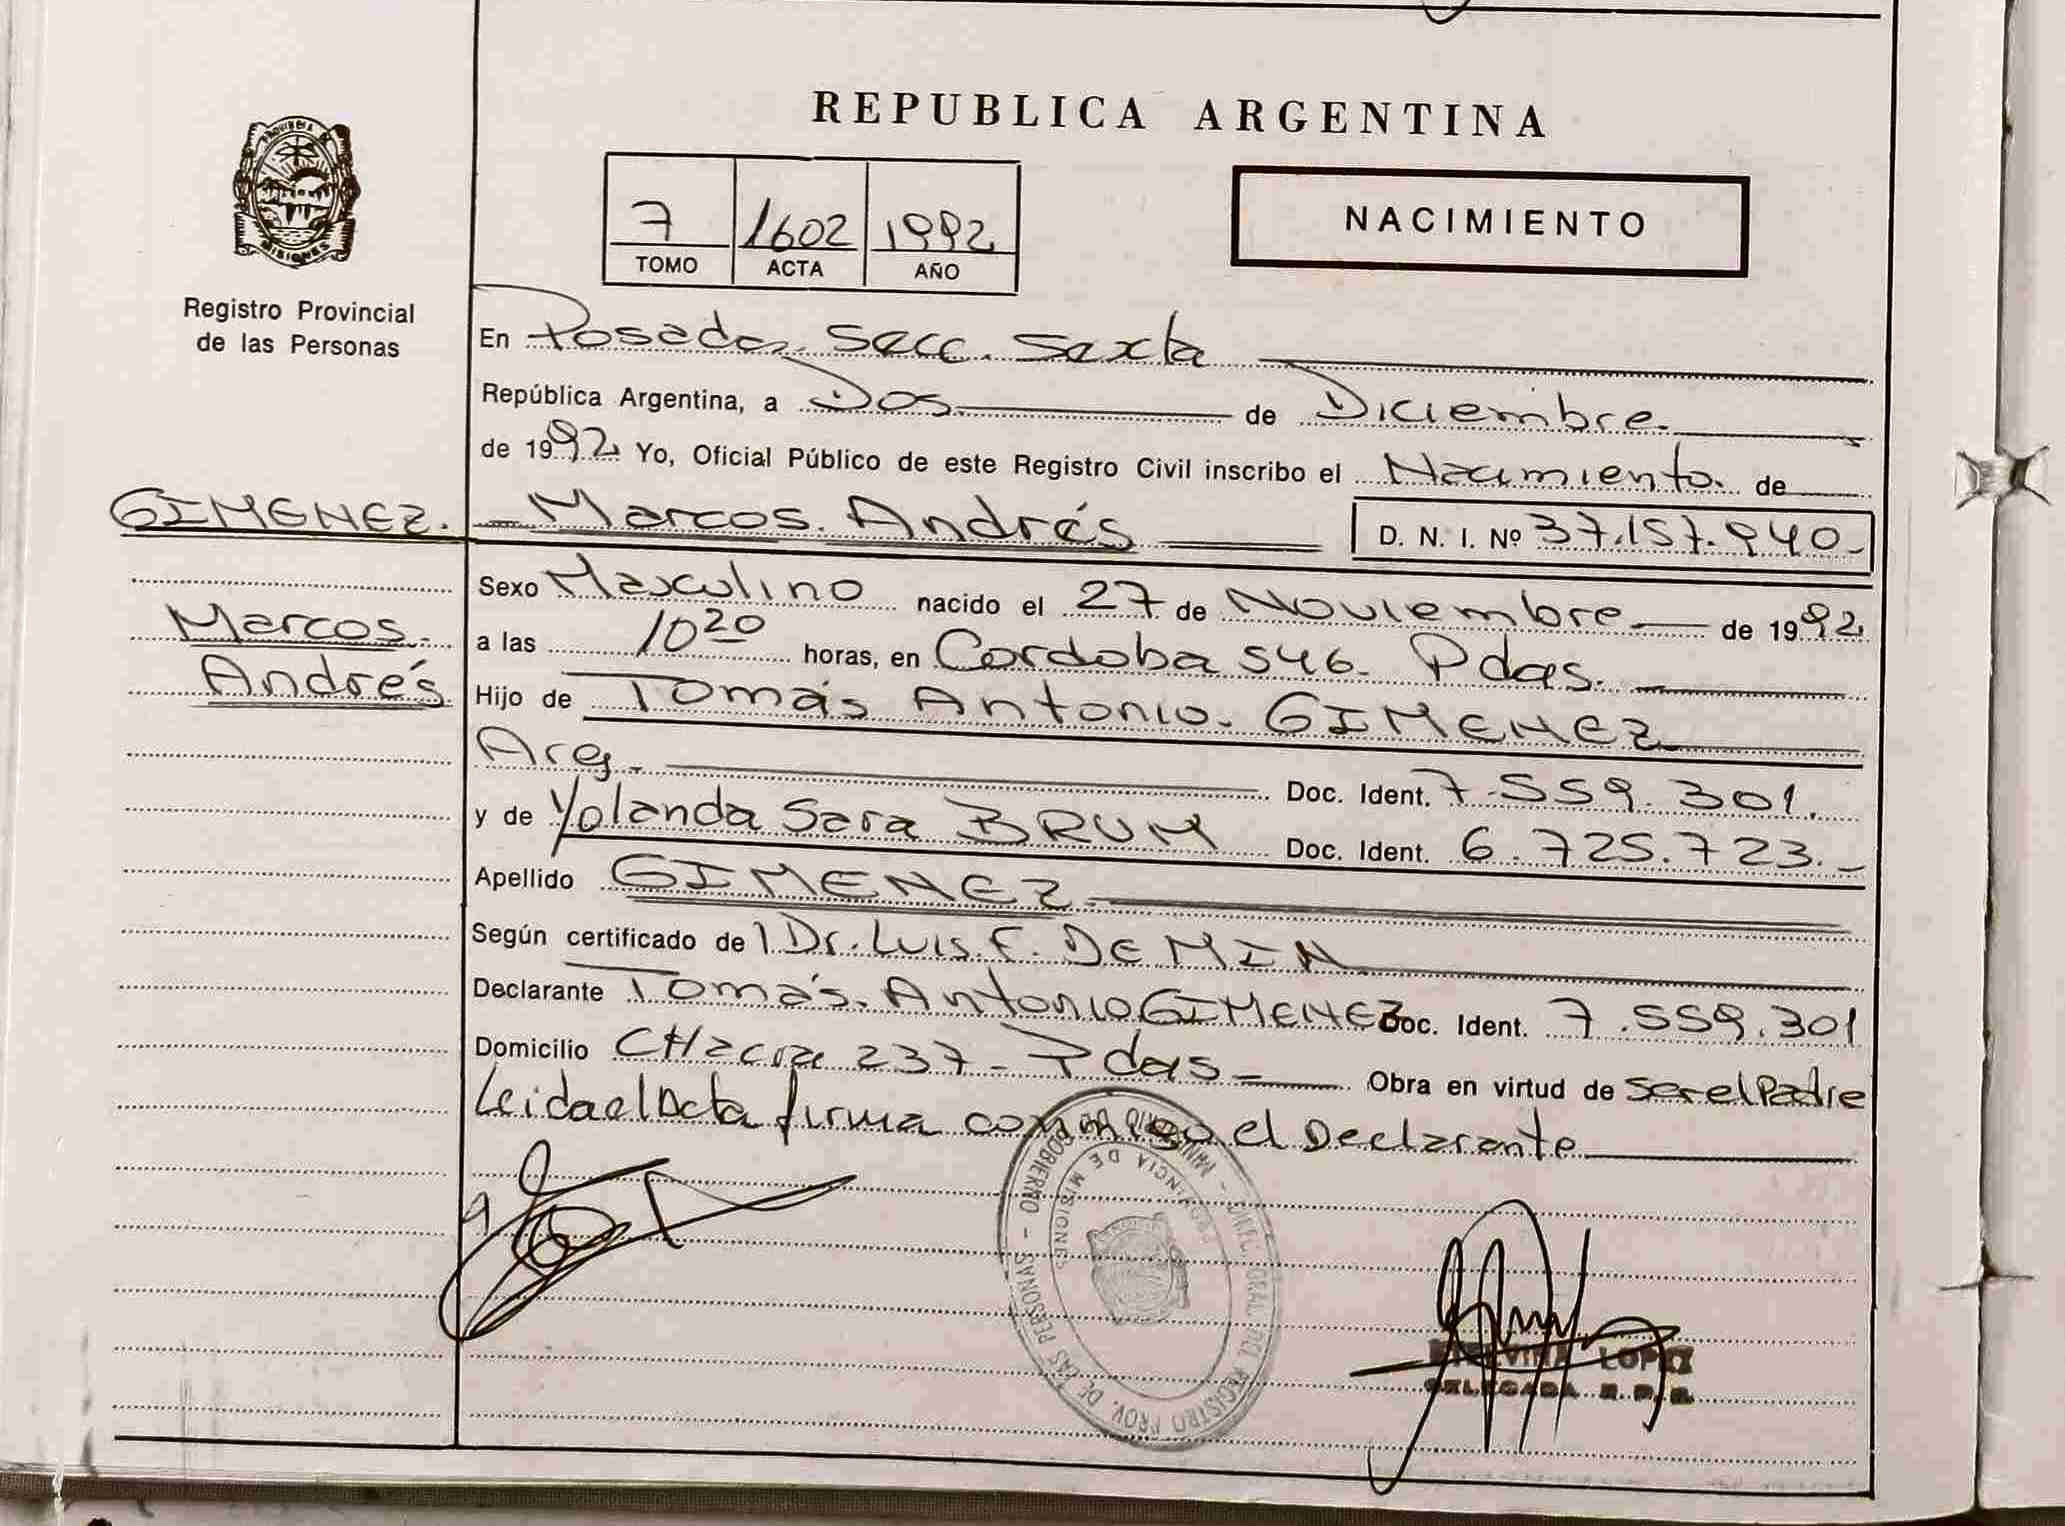 REPUBLICA ARGENTINA
PROVINCIA DE
MISIONES
Registro Provincial
de las Personas
7 1602 1992
TOMO ACTA AÑO
NACIMIENTO
En Posadas Secc. Sexta
República Argentina, a Dos de Diciembre
de 1992 Yo, Oficial Público de este Registro Civil inscribo el Nacimiento de
GIMENEZ. Marcos Andrés D. N. I. Nº 37.157.940
Marcos
Andrés
Sexo Masculino nacido el 27 de Noviembre de 1992
a las 10 20 horas, en Cordoba 546. Pdas.
Hijo de Tomás Antonio GIMENEZ
Arg. Doc. Ident. 7.559.301.
y de Yolanda Sara BRUM Doc. Ident. 6.725.723.
Apellido GIMENEZ
Según certificado de l Dr. Luis. F. DE MIN
Declarante Tomás Antonio GIMENEZ Doc. Ident. 7.559.301
Domicilio CHacra 237 - Pdas Obra en virtud de ser el Padre
Leida el Acta firma conmigo el Declarante
MINISTERIO DE GOBIERNO - DIREC. GRAL. DEL REGISTRO PROV. DE LAS PERSONAS -
PROVINCIA DE MISIONES
LOPEZ
DELEGADA R. P. P.